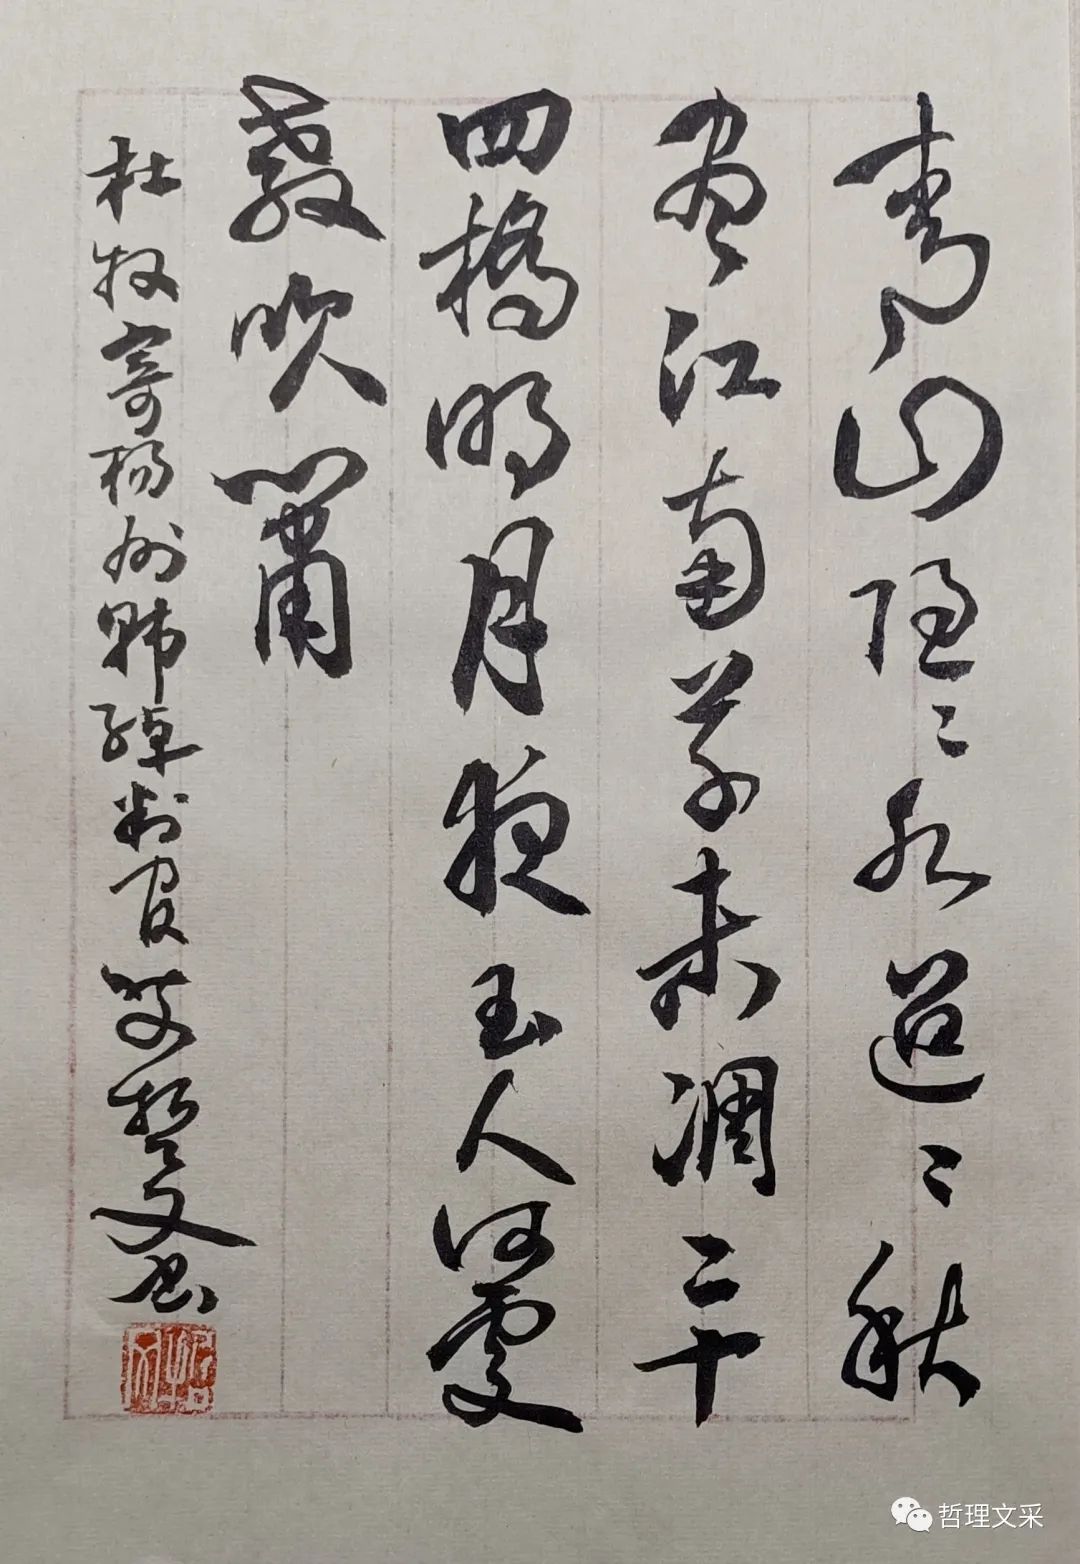 青山隐々水迢々秋
尽江南草未凋二十
四橋明月夜玉人何處
教吹簫
杜牧寄杨州韩绰判官 哲文书
哲文
哲理文采